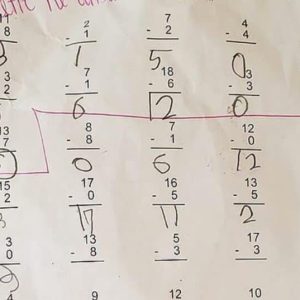 8 2 7 4
- 1 - 2 - 4
1 5 0
3 7 18 3
2 - 1 - 6 - 3
6 2 0
13 8 7 12
7 - 8 - 1 - 0
0 6 12
15 17 16 13
2 - 0 - 5 - 5
17 11 2
3 13 5 17
0 - 8 - 3 - 3
4 9 12 10